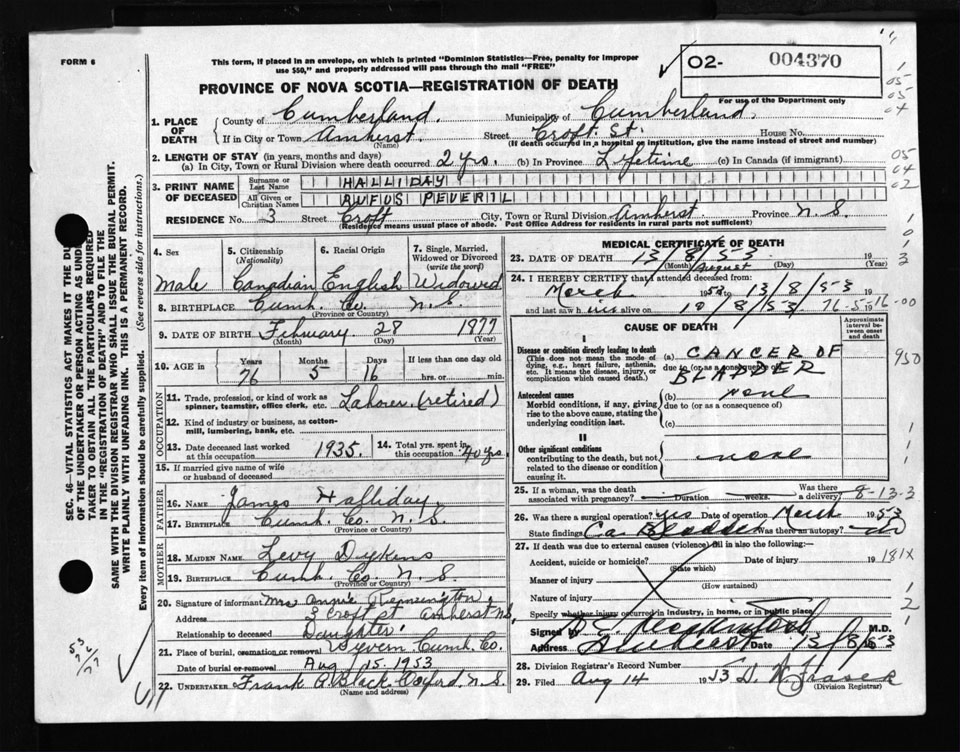 FORM 6
This form, if placed in an envelope, on which is printed "Dominion Statistics—Free, penalty for improper
use $50," and properly addressed will pass through the mail "FREE"
O2- 004370
PROVINCE OF NOVA SCOTIA—REGISTRATION OF DEATH
For use of the Department only
1. PLACE OF DEATH
County of Cumberland. Municipality of Cumberland.
If in City or Town Amherst. Street Croft St. House No.
(Name) (If death occurred in a hospital or institution, give the name instead of street and number)
2. LENGTH OF STAY (in years, months and days)
(a) In City, Town or Rural Division where death occurred 2 yrs. (b) In Province Lifetime (c) In Canada (if immigrant)
3. PRINT NAME OF DECEASED
Surname or Last Name HALLIDAY
All Given or Christian Names RUFUS PEVERIL
RESIDENCE No. 3 Street Croft City, Town or Rural Division Amherst. Province N.S.
(Residence means usual place of abode. Post Office Address for residents in rural parts not sufficient)
4. Sex 5. Citizenship (Nationality) 6. Racial Origin 7. Single, Married, Widowed or Divorced (write the word)
Male Canadian English Widowed
8. BIRTHPLACE Cumb. Co. N.S.
(Province or Country)
9. DATE OF BIRTH February 28 1877
(Month) (Day) (Year)
10. AGE in Years Months Days If less than one day old
76 5 16 hrs. or min.
OCCUPATION
11. Trade, profession, or kind of work as
spinner, teamster, office clerk, etc. Labourer (retired)
12. Kind of industry or business, as cotton-
mill, lumbering, bank, etc.
13. Date deceased last worked
at this occupation 1935. 14. Total yrs. spent in
this occupation 40 yrs.
15. If married give name of wife
or husband of deceased
FATHER
16. NAME James Halliday.
17. BIRTHPLACE Cumb. Co. N.S.
(Province or Country)
MOTHER
18. MAIDEN NAME Levy Dykens
19. BIRTHPLACE Cumb. Co. N.S.
(Province or Country)
20. Signature of informant Mrs Annie Remsington
Address 3 Croft St Amherst N.S.
Relationship to deceased Daughter.
21. Place of burial, cremation or removal Wyvern Cumb. Co.
Date of burial or removal Aug 15. 1953
22. UNDERTAKER Frank A Black Oxford, N.S.
(Name and address)
MEDICAL CERTIFICATE OF DEATH
23. DATE OF DEATH 13/8/53 19
(Month) August (Day) (Year)
24. I HEREBY CERTIFY that I attended deceased from:
March 1953 to 13/8/53
and last saw him alive on 12/8/53 19
76-5-16-00
CAUSE OF DEATH
Approximate interval between onset and death
I
Disease or condition directly leading to death (a) CANCER OF
(This does not mean the mode of dying, e.g., heart failure, asthenia, etc. It means the disease, injury, or complication which caused death.) due to (or as a consequence of)
BLADDER
Antecedent causes (b) none
Morbid conditions, if any, giving rise to the above cause, stating the underlying condition last. due to (or as a consequence of)
(c)
II
Other significant conditions
contributing to the death, but not related to the disease or condition causing it. none
25. If a woman, was the death
associated with pregnancy? Duration weeks. Was there a delivery?
8-13-3
26. Was there a surgical operation? yes Date of operation March 1953
State findings Ca. Bladder Was there an autopsy? no
27. If death was due to external causes (violence) fill in also the following:—
Accident, suicide or homicide? Date of injury 19
(State which)
181X
Manner of injury
(How sustained)
Nature of injury
Specify whether injury occurred in industry, in home, or in public place
Signed by M.D.
Amherst Date 13/8/53
28. Division Registrar's Record Number
29. Filed Aug 14 1953
(Division Registrar)
SEC. 46—VITAL STATISTICS ACT MAKES IT THE DUTY
OF THE UNDERTAKER OR PERSON ACTING AS UNDER-
TAKER TO OBTAIN ALL THE PARTICULARS REQUIRED
IN THE "REGISTRATION OF DEATH" AND TO FILE THE
SAME WITH THE DIVISION REGISTRAR WHO SHALL ISSUE THE BURIAL PERMIT.
WRITE PLAINLY WITH UNFADING INK. THIS IS A PERMANENT RECORD.
Every item of information should be carefully supplied. (See reverse side for instructions.)